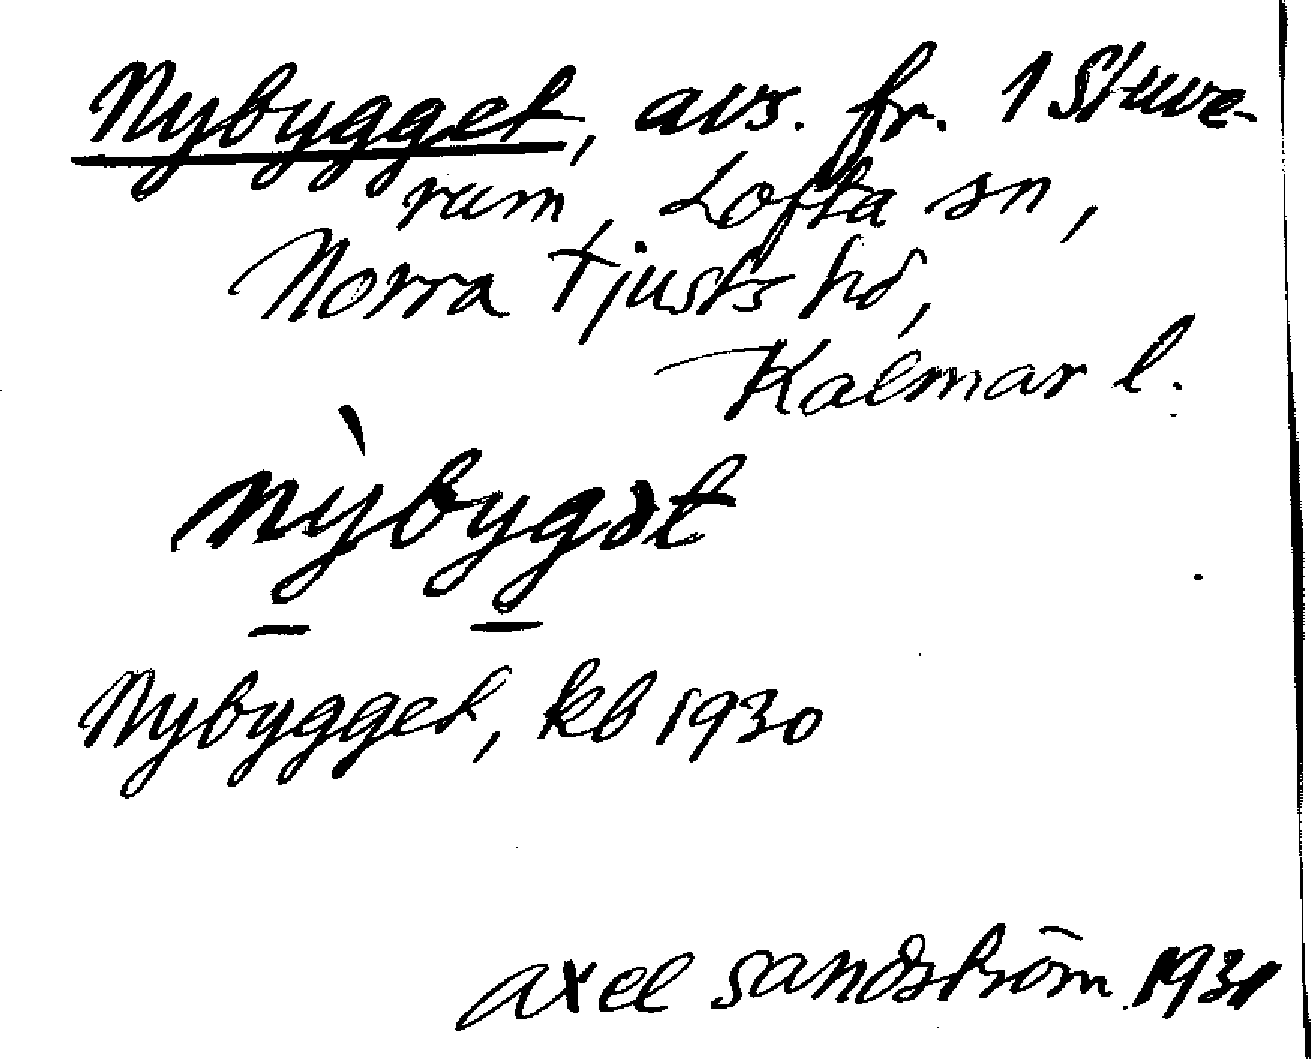 Nybygget, avs. fr. 1 Stuve-
rum, Lofta sn,
Norra Tjusts hd,
Kalmar l.
nỳbygət
Nybygget, kb 1930
Axel Sandström 1931